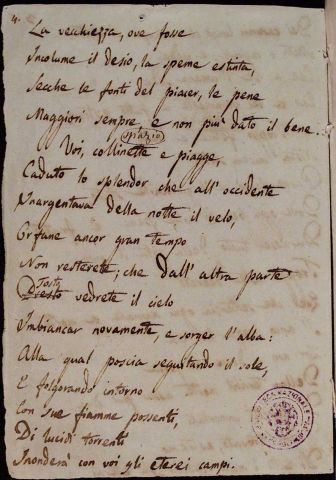 4.
La vecchiezza, ove fosse
Incolume il desio, la speme estinta,
Secche le fonti del piacer, le pene
Maggiori sempre, e non più dato il bene.
spazio
Voi, collinette e piagge,
Caduto lo splendor che all'occidente
Inargentava della notte il velo,
Orfane ancor gran tempo
Non resterete; che dall'altra parte
Tosto
Presto vedrete il cielo
Imbiancar novamente, e sorger l'alba:
Alla qual poscia seguitando il sole,
E folgorando intorno
Con sue fiamme possenti,
Di lucidi torrenti
Inonderà con voi gli eterei campi.